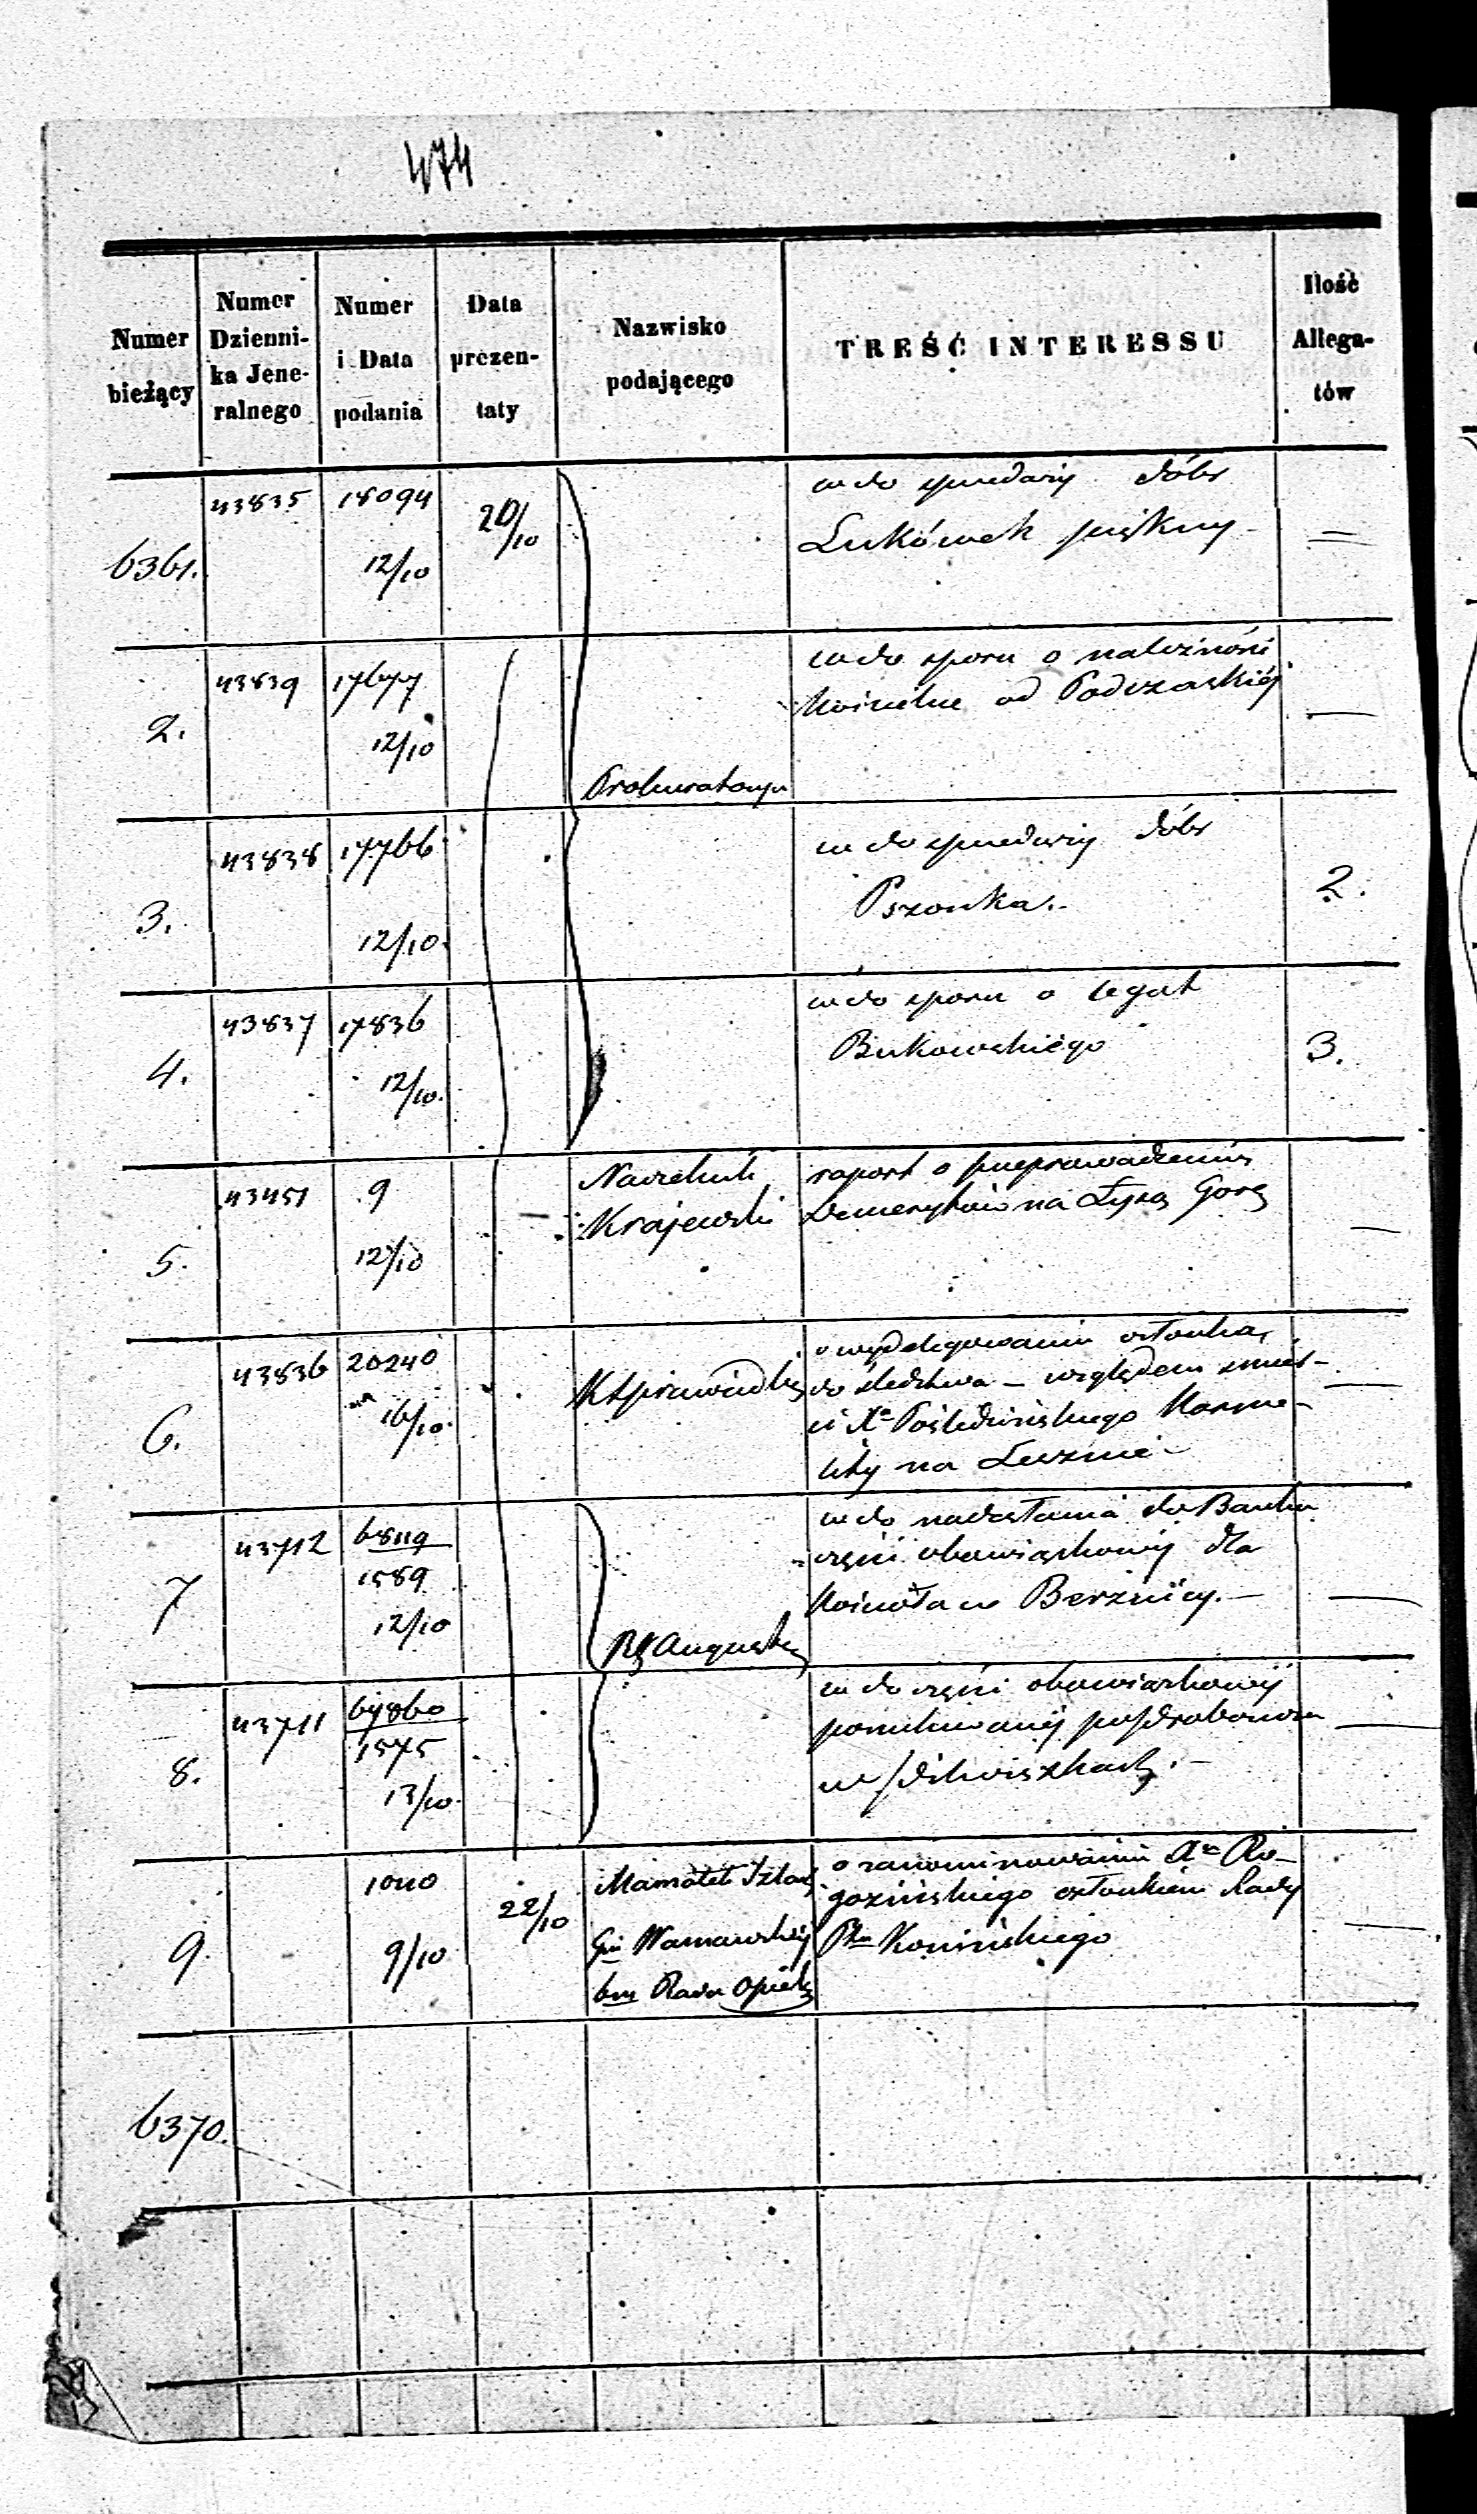 474
Numer bieżący
Numer Dzienni-ka Jene-ralnego
Numer i Data podania
Data prezen-taty
Nazwisko podającego
TREŚĆ INTERESSU
Ilość Allega-tów
6361. 43835 18094 12/10 20/10
w do sprzedaży dóbr
Lukówek piękny
2. 43839 17677 12/10
Prokuratorya
w do sporu o należności
kościelne od Podczaskiéj
3. 43838 17766 12/10
w do sprzedaży dóbr
Pszonka.
2.
4. 43837 17836 12/10.
w do sporu o legat
Bukowskiégo
3.
5. 43451 9 12/10
Naczelnik
Krajewski
raport o przeprowadzeniu
Demerytów na Łysą Gorę
6. 43836 20240 16/10.
KSprawiedl
o wydelegowanie członka
do śledztwa – względem śmier-
ci Xa Karme-
lity na Lesznie
7 43712 1589 12/10
RG August
w do nadesłania do Banku
części obowiązkowéj dla
kościoła w Berżnicy. –
8. 43711 67860 1575 13/10.
w do części obowiązkowéj
poszukiwanéj po
w
9. 1040 9/10 22/10
Gii Warszawskiéj
bez Rada Opiek
o zanominowaniu Xa Ro-
gozińskiego członkiem Rady
Ptu Konińskiego
6370.